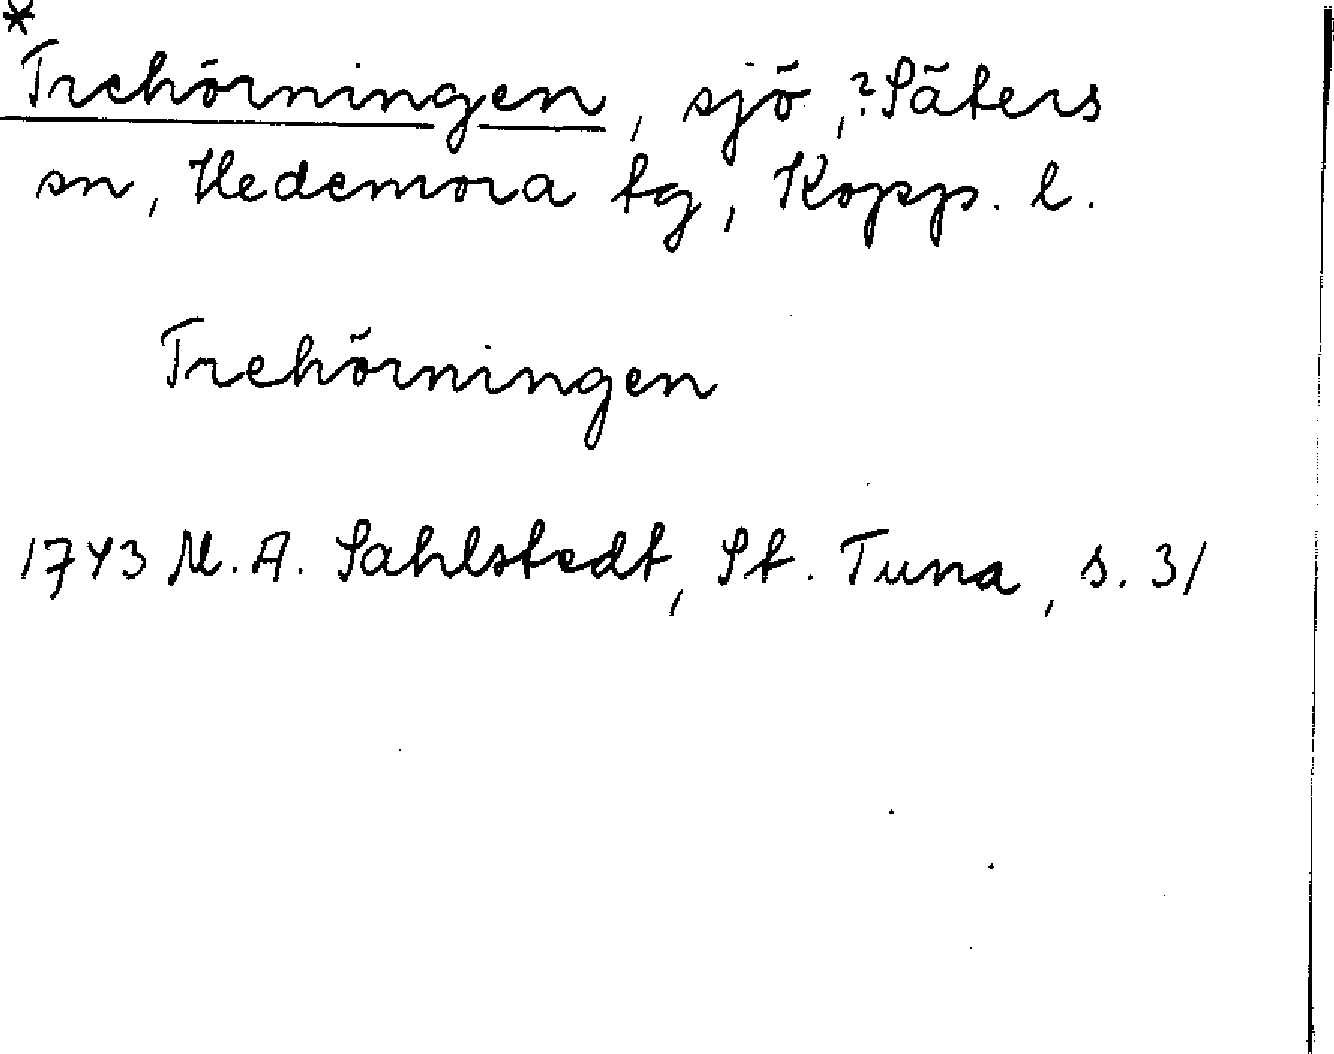 *
Trehörningen, sjö, ?Säters
sn, Hedemora tg, Kopp. l.
Trehörningen
1743 M. A. Sahlstedt, St. Tuna, s. 31